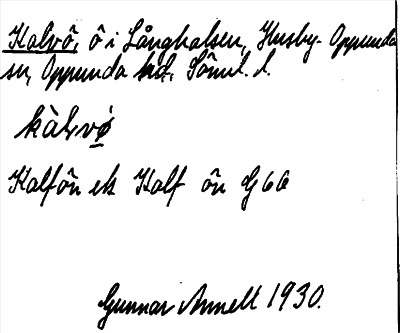 Kalvö, ö i Långhalsen, Husby-Oppunda
sn, Oppunda hd, Söml. l.
kàlvö
Kalfön ek Kalf ön G66
Gunnar Annell 1930.